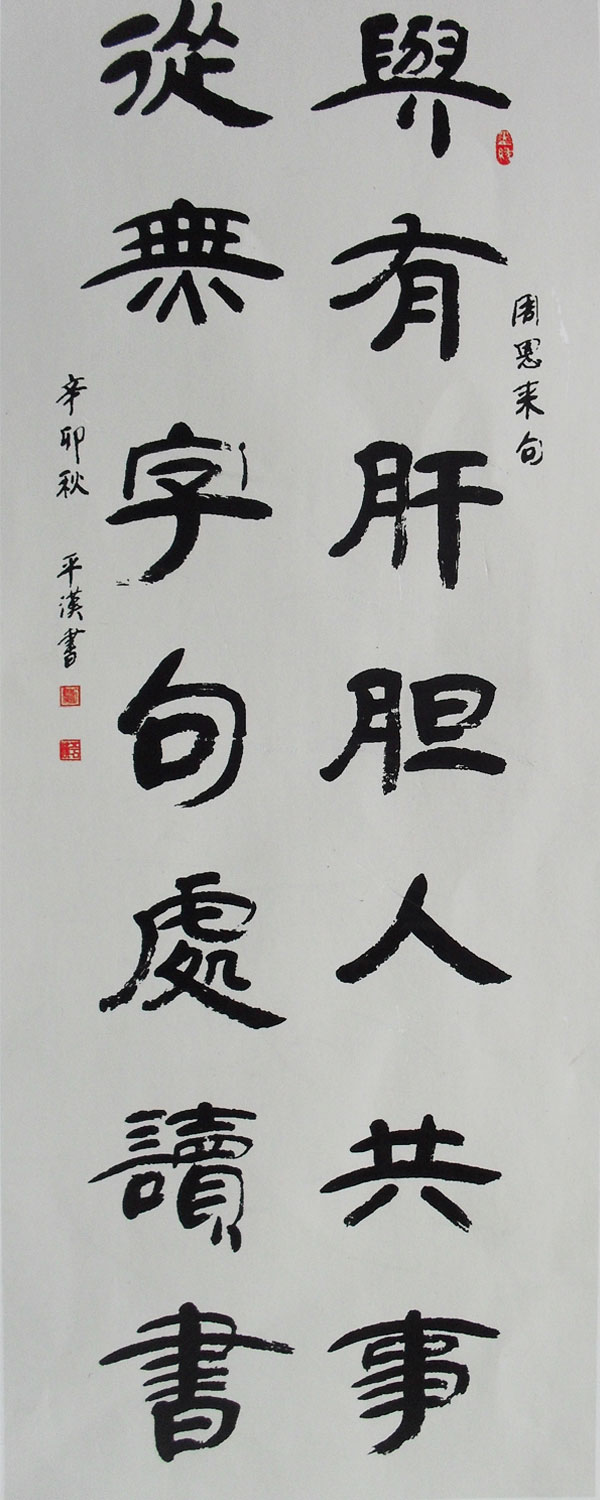 與有肝胆人共事
周恩来句
從無字句處讀書
辛卯秋 平漢書